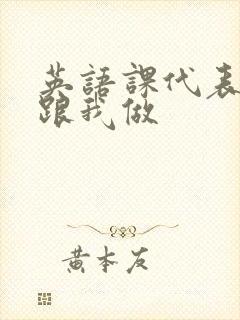 英語課代表
跟我做
黄本友